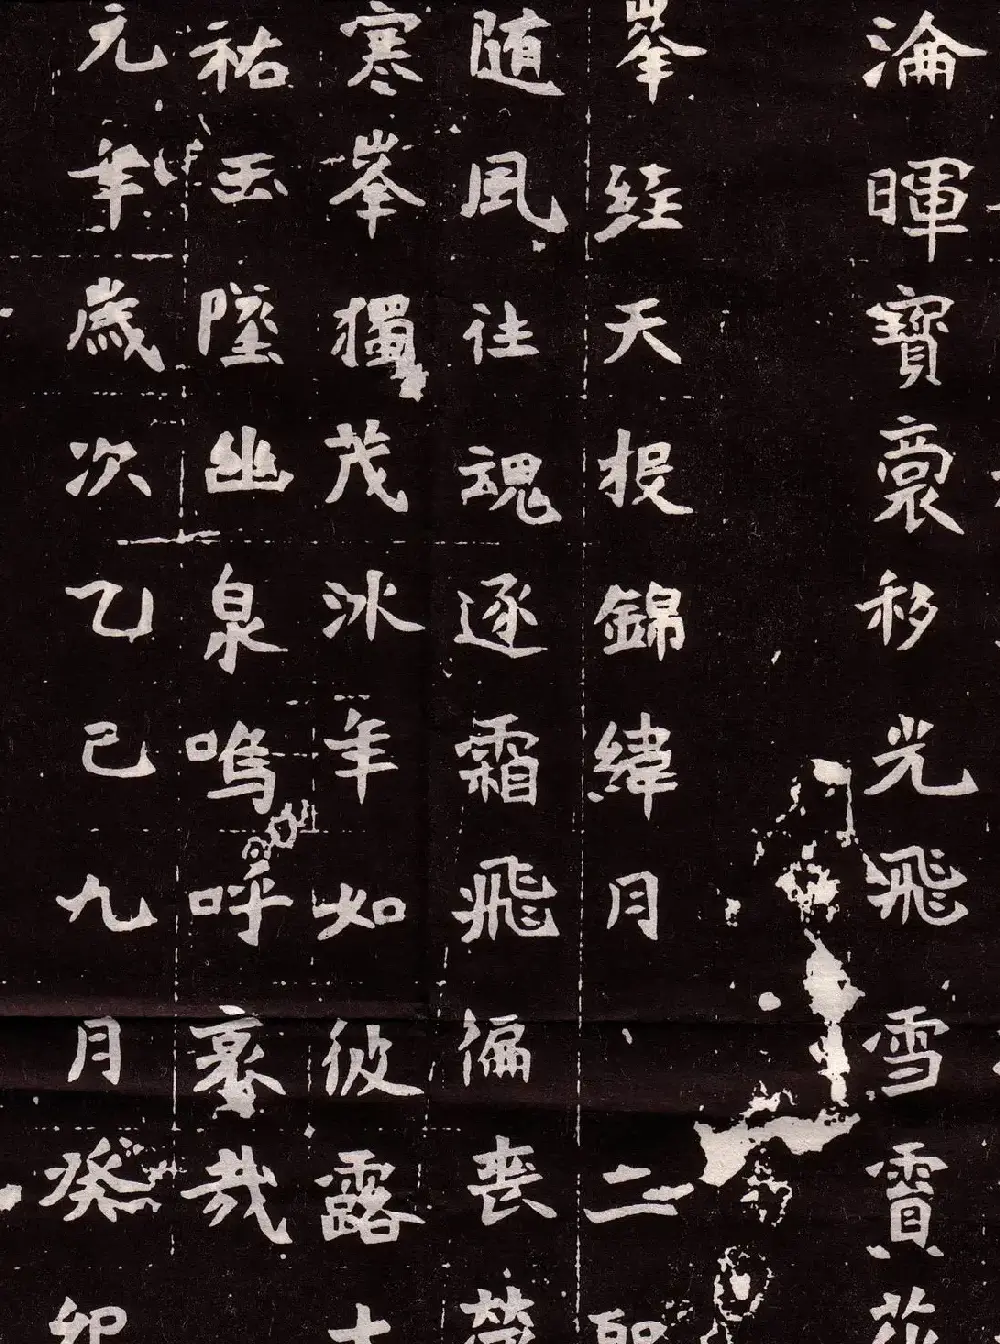 淪暉寶裛移光飛雪賣
峯經天投錦緯月二
随風往魂逐霜飛徧喪
寒峯獨茂冰年如彼露
祐玉墜幽泉嗚呼哀哉
元年歲次乙巳九月癸卯